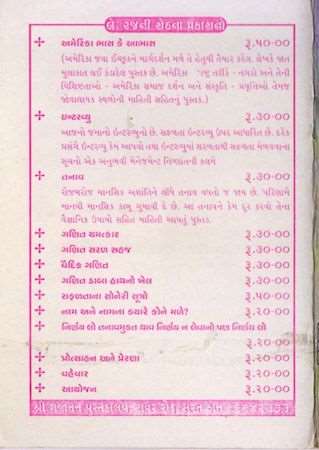 લે. રજની શેઠના પ્રકાશનો
અમેરિકા ભાસ કે આભાસ રૂ.૫૦-૦૦
(અમેરિકા જવા ઈચ્છુકને માર્ગદર્શન મળે તે હેતુથી તૈયાર કરેલ. લેખકે જાત
મુલાકાત લઈ કંડારેલ પુસ્તક છે. અમેરિકા રાષ્ટ્ર તરીકે - નગરો અને તેની
વિશિષ્ટતાઓ - અમેરિકા સમાજ દર્શન અને સંસ્કૃતિ - પ્રવૃત્તિઓ તેમજ
જોવાલાયક સ્થળોની માહિતી સહિતનું પુસ્તક.)
ઇન્ટરવ્યુ રૂ.૩૦-૦૦
આજનો જમાનો ઇન્ટરવ્યુનો છે. સફળતા ઇન્ટરવ્યુ ઉપર આધારિત છે. દરેક
પ્રસંગે ઇન્ટરવ્યુ કેમ આપવો તથા ઇન્ટરવ્યુમાં સરળતાથી સફળતા મેળવવાના
સૂચનો એક અનુભવી મેનેજમેન્ટ નિષ્ણાતની કલમે
તનાવ રૂ.૩૦-૦૦
રોજબરોજ માનસિક અશાંતિને લીધે તનાવ વધતો જ જાય છે. પરિણામે
માનવી માનસિક કાબુ ગુમાવી દે છે. આ તનાવને કેમ દૂર કરવો તેના
વૈજ્ઞાનિક ઉપાયો સહિત માહિતી આપતું પુસ્તક.
ગણિત ચમત્કાર રૂ.૩૦-૦૦
ગણિત સરળ સહજ રૂ.૩૦-૦૦
વૈદિક ગણિત રૂ.૩૦-૦૦
ગણિત ડાબા હાથનો ખેલ રૂ.૩૦-૦૦
સફળતાના સોનેરી સૂત્રો રૂ.૫૦-૦૦
નામ અને નામના ક્યારે કોને મળે? રૂ.૨૦-૦૦
નિર્ણય લો તનાવમુક્ત થાવ નિર્ણય ન લેવાનો પણ નિર્ણય લો
રૂ.૨૦-૦૦
પ્રોત્સાહન અને પ્રેરણા રૂ.૨૦-૦૦
વહેવાર રૂ.૨૦-૦૦
આયોજન રૂ.૨૦-૦૦
શ્રી ગજાનન પુસ્તકાલય, ટાવર રોડ, સુરત